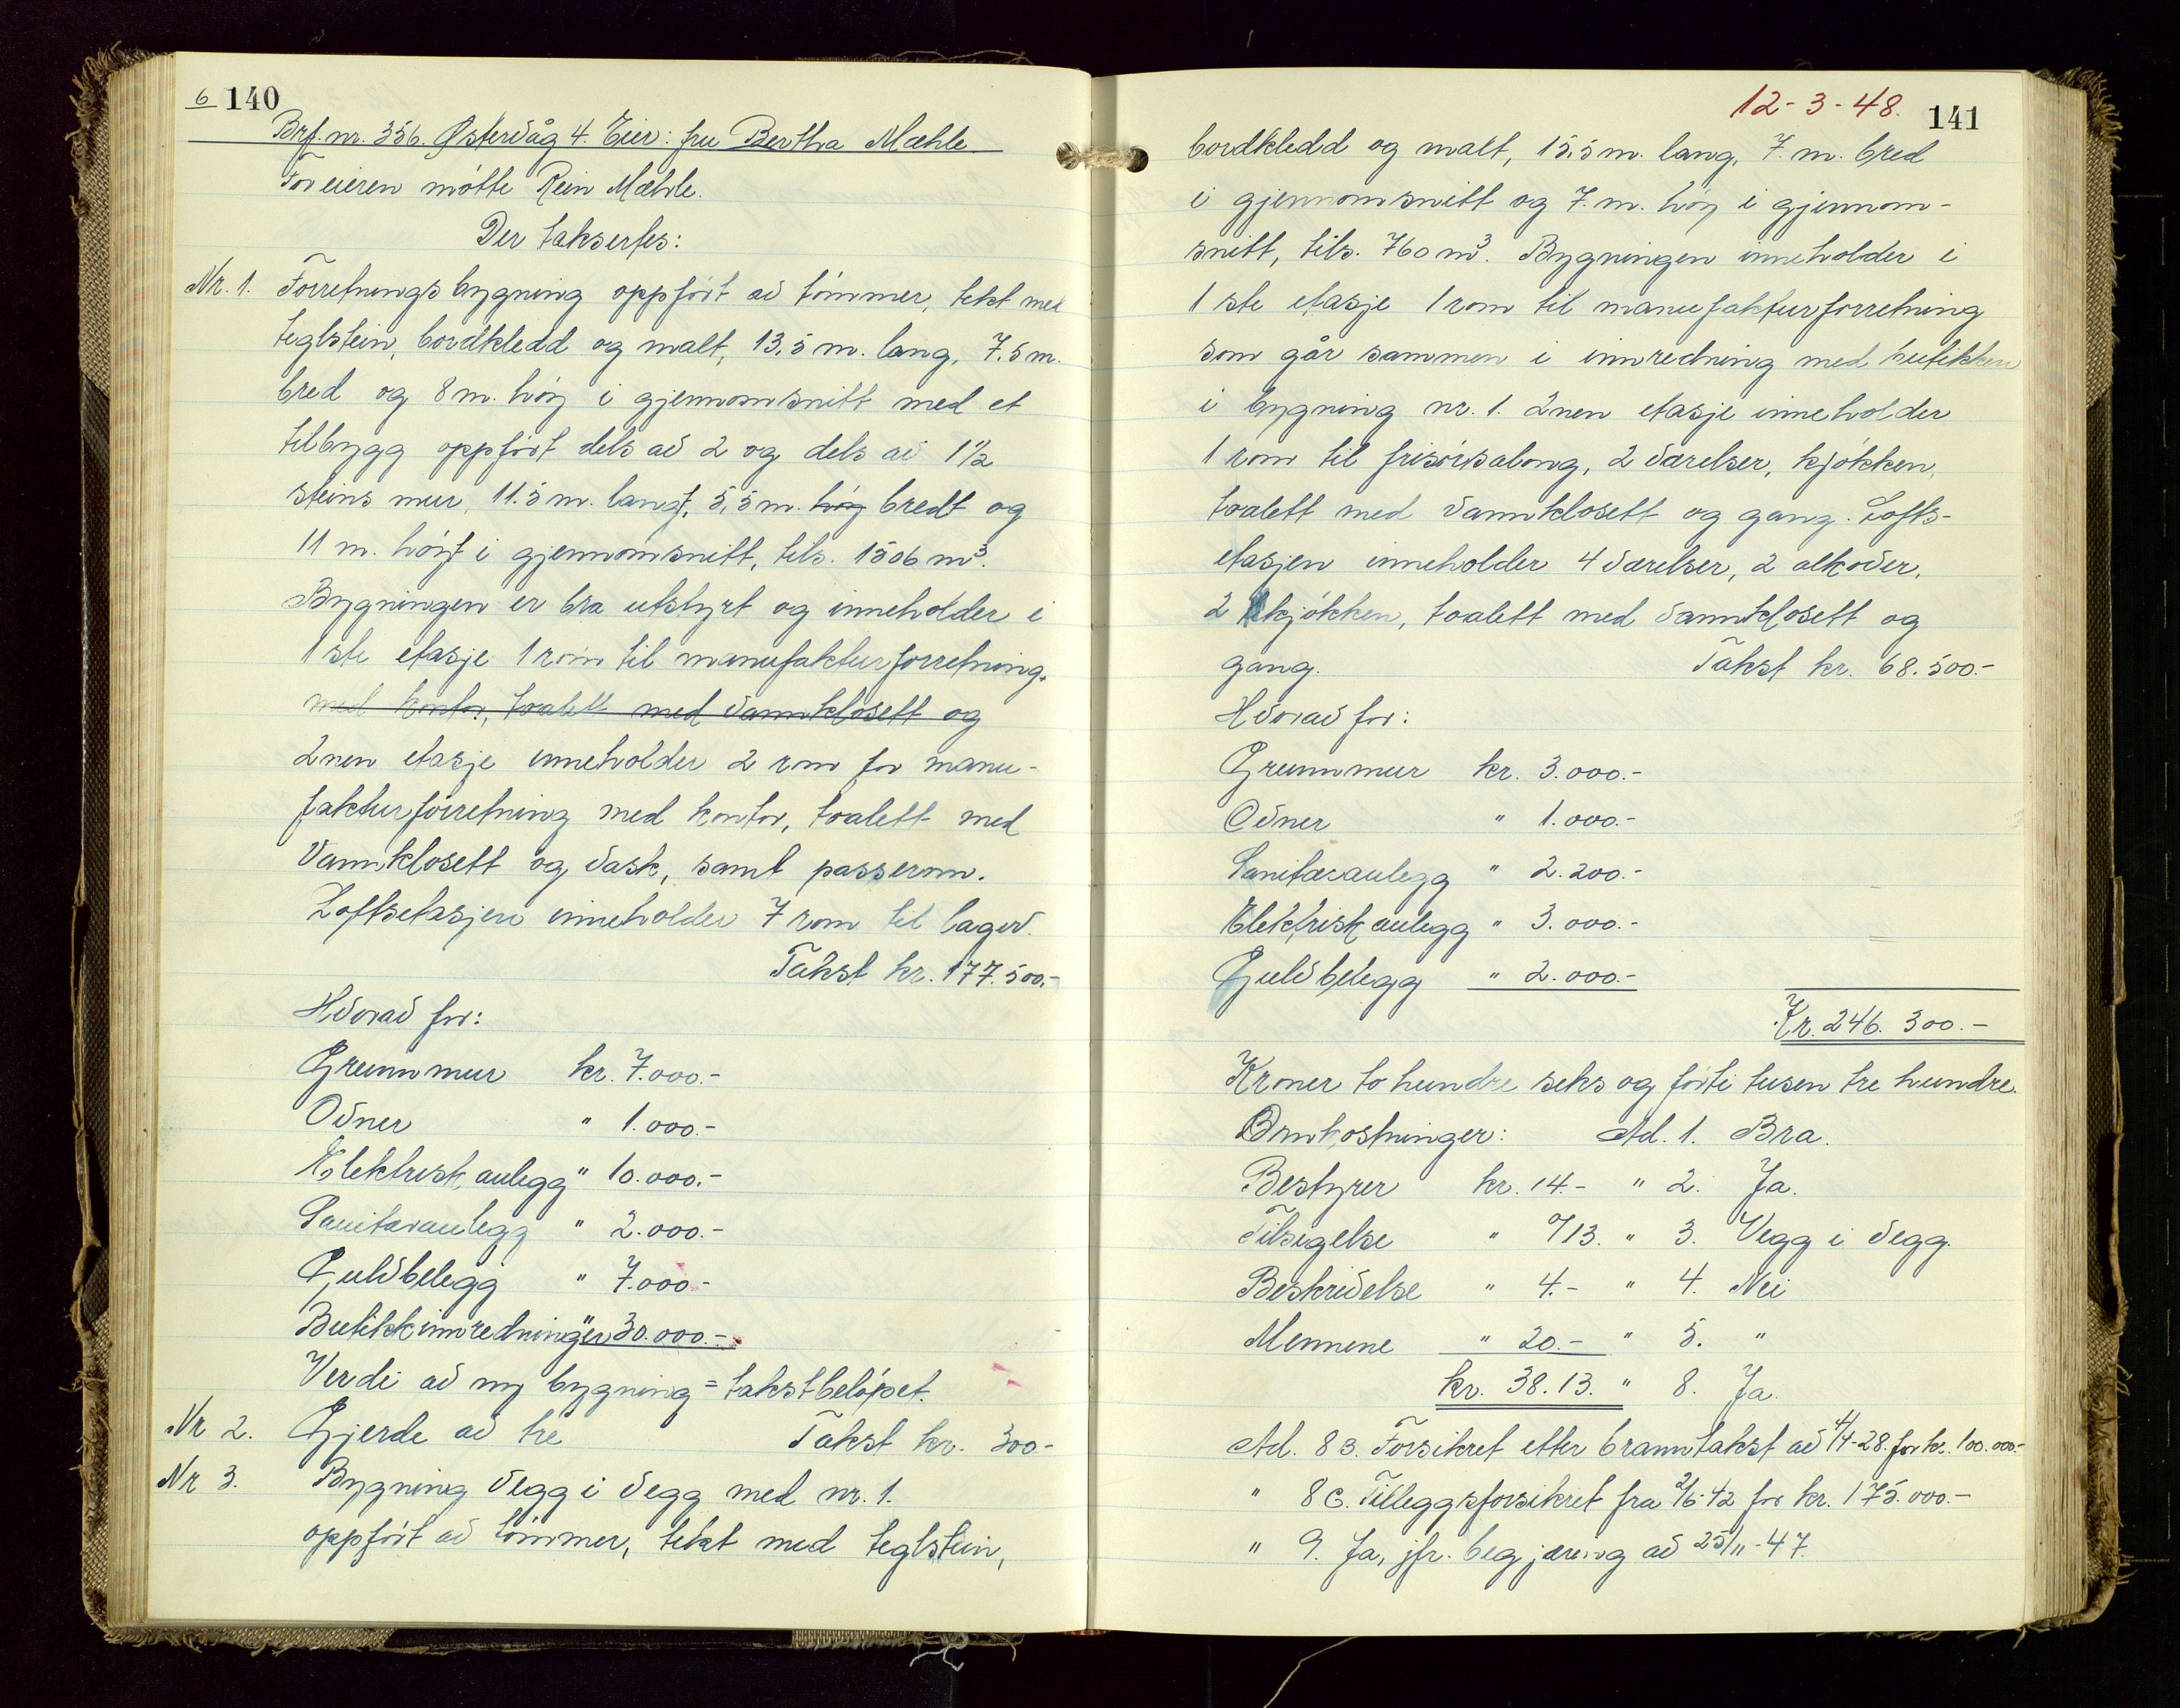 6 140
Brf. nr. 356. Østervåg 4. Eier: fru Bertha Mæhle.
For eieren møtte Rein Mæhle.
Der takseres:
Nr. 1. Forretningsbygning oppført av tømmer, tekt med
teglstein, bordkledd og malt, 13,5 m. lang, 7,5 m.
bred og 8 m. høy i gjennomsnitt med et
tilbygg oppført dels av 2 og dels av 1 1/2
steins mur, 11.5 m. langt, 5,5 m. høy bredt og
11 m. høyt i gjennomsnitt, tils. 1506 m³.
Bygningen er bra utstyrt og inneholder i
1ste etasje 1 rom til manufakturforretning.
med kontor, toalett med vannklosett og
2nen etasje inneholder 2 rom for manu-
fakturforretning med kontor, toalett med
vannklosett og vask, samt passerom.
Loftsetasjen inneholder 7 rom til lager.
Takst kr. 177.500.-
Hvorav for:
Grunnmur kr. 7.000.-
Ovner " 1.000.-
Elektrisk anlegg " 10.000.-
Sanitæranlegg " 2.000.-
Gulvbelegg " 7.000.-
Butikkinnredninger " 30.000.-
Verdi av ny bygning = takstbeløpet.
Nr 2. Gjerde av tre Takst kr. 300.-
Nr 3. Bygning vegg i vegg med nr. 1.
oppført av tømmer, tekt med teglstein,
12-3-48. 141
bordkledd og malt, 15,5 m. lang, 7. m. bred
i gjennomsnitt og 7. m. høy i gjennom-
snitt, tils. 760 m³. Bygningen inneholder i
1ste etasje 1 rom til manufakturforretning
som går sammen i innredning med butikken
i bygning nr. 1. 2nen etasje inneholder
1 rom til frisørsalong, 2 værelser, kjøkken,
toalett med vannklosett og gang. Lofts-
etasjen inneholder 4 værelser, 2 alkover,
2 kjøkken, toalett med vannklosett og
gang. Takst kr. 68.500.-
Hvorav for:
Grunnmur kr. 3.000.-
Ovner " 1.000.-
Sanitæranlegg " 2.200.-
Elektrisk anlegg " 3.000.-
Gulvbelegg " 2.000.-
Kr. 246.300.-
Kroner to hundre seks og førti tusen tre hundre.
Omkostninger: Ad. 1. Bra.
Bestyrer kr. 14.- " 2. Ja.
Tilsigelse " 0/13. " 3. Vegg i vegg.
Beskrivelse " 4.- " 4. Nei
Mennene " 20.- " 5. "
kr. 38.13. " 8. Ja.
Ad. 8 B. Forsikret etter branntakst av 4/4-28. for kr. 100.000.-
" 8 C. Tilleggsforsikret fra 2/6-42 for kr. 175.000.-
" 9. Ja, jfr. begjæring av 25/11-47.